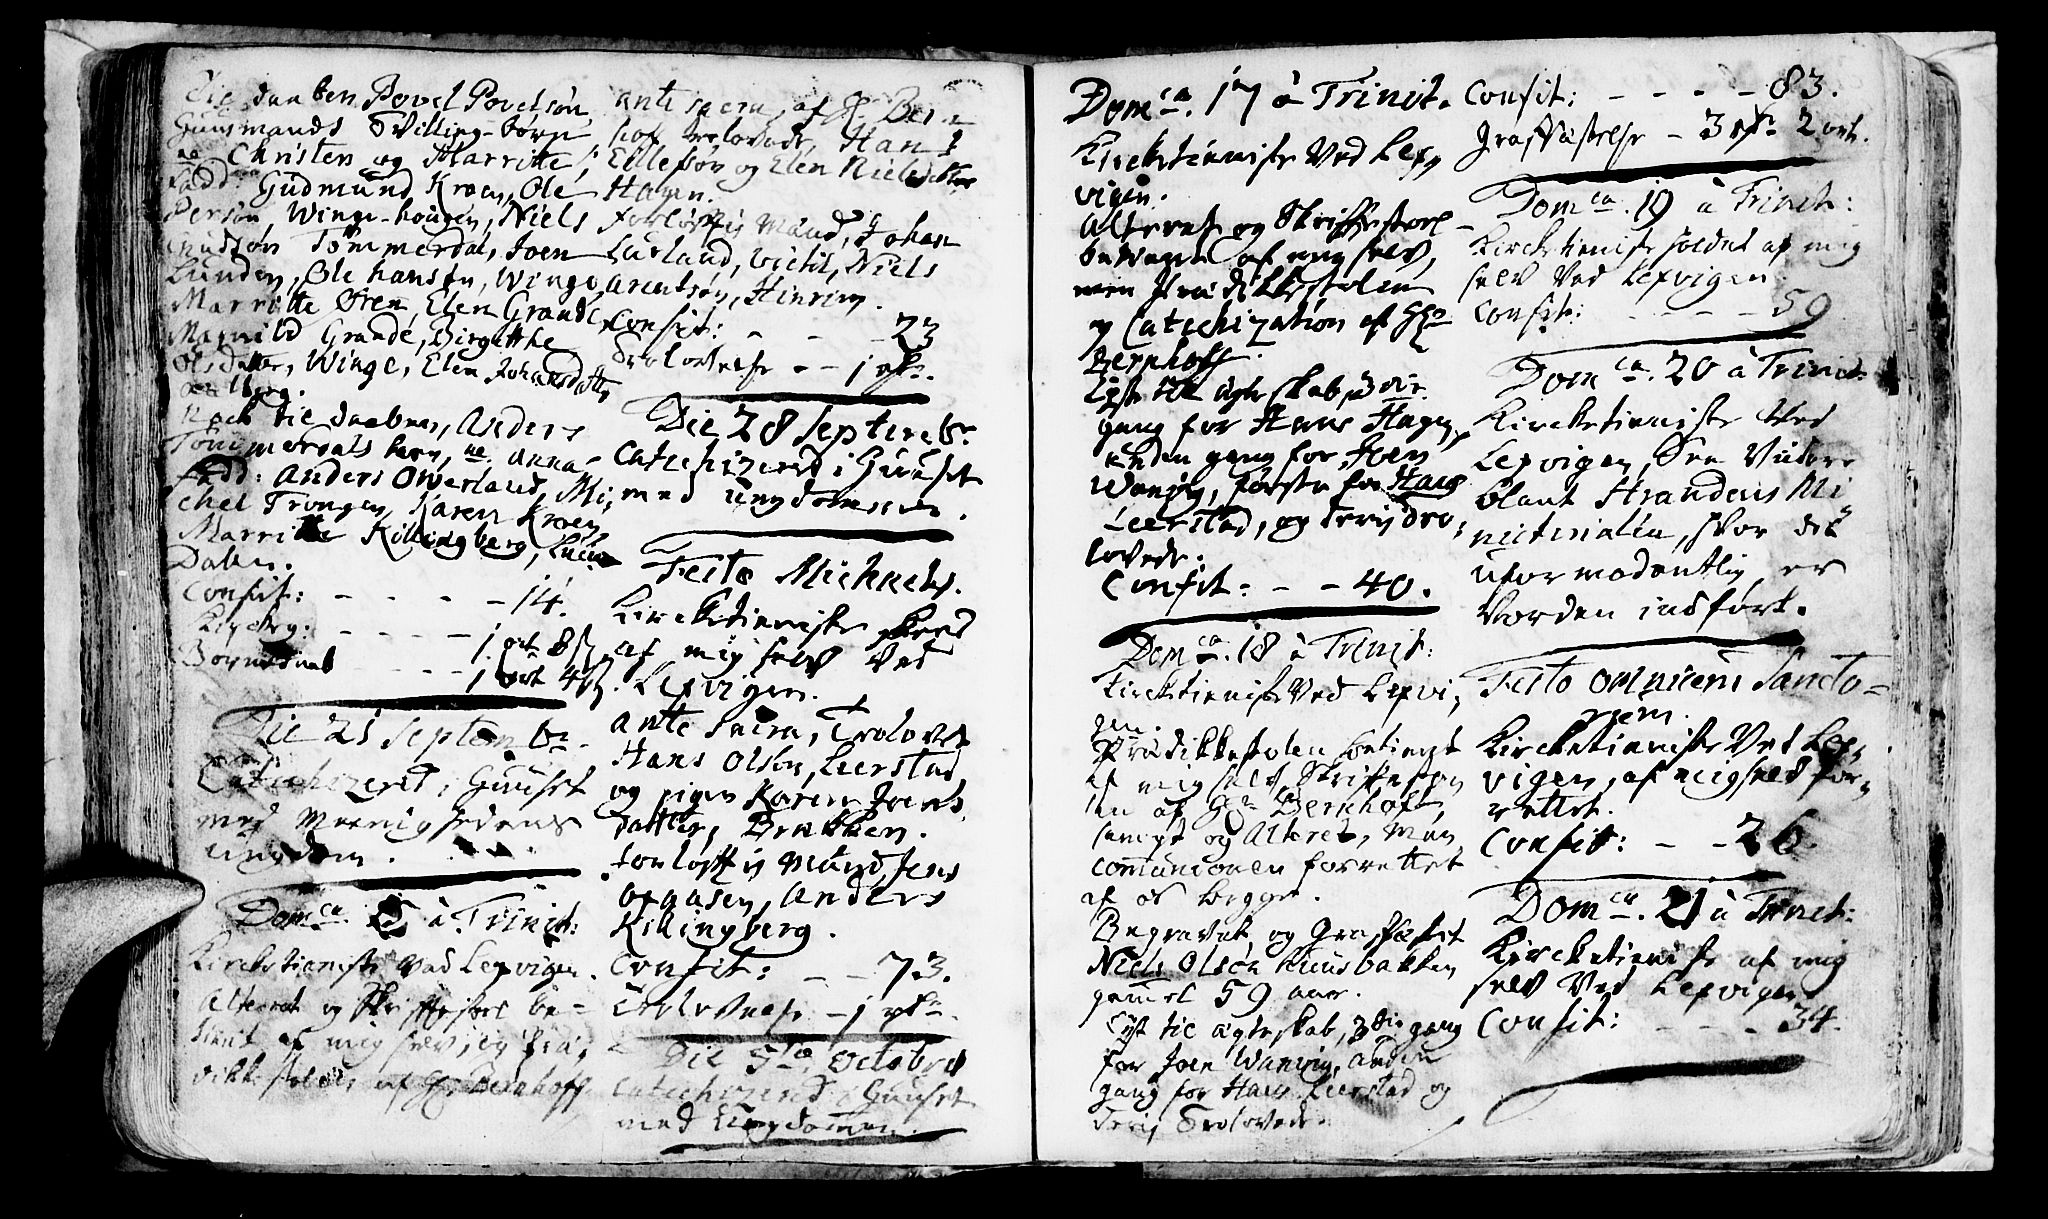 Til daaben Povel Povelsøn
Guusmands Tvilling-børn
na Christen og Marritte /:
fadd: Gudmund Kroen, Ole
Persøn Winge-hougen, Niels
Knudsøn Tømmerdal, Joen
Lunden, Ole hansen, Winge,
Marritte Øren, Elen Grande,
Magnild Grande, Birgitthe
olsdatter, Winge, Elen Johansdatter
berg.
Nock til daaben, Anders
Tømmerdals barn, na. anna
fadd: Anders Owerland, Mi,
chel Trongen, Karen Kroen
Marritte Killingberg,
Dalen.
Confit: - - - - 14.
- - - 1 ort 8 ß
- - - 1 ort 4 ß.
Die 21 Septembr.
Catechizeret i Guuset
med Meenighedens
ungdom.
Domca. à Trinit:
Kircketieniste Ved Lexvigen.
Alteret og Skrifftestoel be-
tient af mig selv, og Præ,
dikkestolen af Hr. Bernhoff
ante sacra, af Hr. Bern
hof trolovede, Hans
Ellefsøn og Elen Nielsdatter
Hagen.
forløfftis Mænd, Johan
Lutland, Vietil, Niels
arentsøn, Hinriem.
Confit: - - - 23
Trolovelse - - 1 rdr.
Die 28 Septembr.
Catechizered i Guuset
med ungdommen.
Festo Michaelis.
Kircketieniste skeed
af mig selv Ved
Lexvigen.
Ante Sacra, Trolovet
Hans Olsøn, Leerstad,
og pigen Karen Joens
datter, Brækken.
forløfftis Mænd, Jens
Opaasen, Anders
Killingberg.
Confit: - - 73.
Trolovelse - 1 rdr.
Die 5te Octobris
Catechizered i Guuset
med Ungdommen.
Domca. 17 à Trinit.
Kircketieniste Ved Lex,
vigen.
Alteret og Skrifftestoel
betient af mig selv,
men Prædikkestolen
og Catechization af Hr
Bernhoff.
Lyst til ægteskab, 3die
gang for Hans Hagen,
anden gang for Joen
Wanvig, første for Hans
Leerstad, og deris Tro,
lovede.
Confit: - - 40.
Domca. 18 à Trinit:
Kircketieniste Ved Lexvi,
gen.
Prædikkestolen betient
af mig selv, Skrifftesto,
len af Hr. Bernhoft,
sampt og Alteret, Men
Communionen forrettet
af os begge.
Begravet og Graffæstet
Niels Olsøn Huusbakken
gamel 59 aar.
Lyst til ægteskab, 3die gang
for Joen Wanvig, anden
gang for Hans Leerstad og
deris Trolovede.
Confit: - - - - 83.
Graffæstelse - 3 rdr. 2 ort.
Domca. 19 à Trinit:
Kircketieniste holdet af mig
selv Ved Lexvigen
Confit: - - - - 59
Domca. 20 à Trinit:
Kircketieniste Ved
Lexvigen, See Videre
blant Strandens Mi
nisterialia, hvor det
uformodentlig er
Vorden indført.
Festo omnium Sancto=
rum.
Kircketieniste Ved Lex,
vigen, af mig selv for,
rettet.
Confit: - - 26.
Domca. 21 à Trinit:
Kircketieniste af mig
selv Ved Lexvigen
Confit: - - - 34.